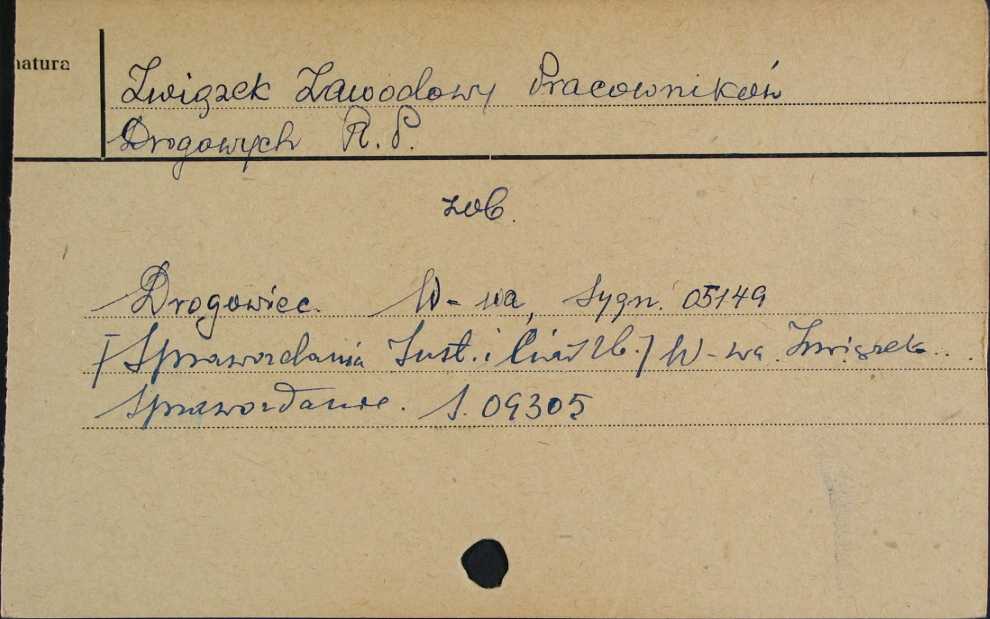 natura
Związek Zawodowy Pracowników
Drogowych R.P.
zob.
Drogowiec. W-wa, sygn. 05149
[Sprawozdania Inst. i Ciał Zb.] W-wa. Związek...
Sprawozdanie. S. 09305